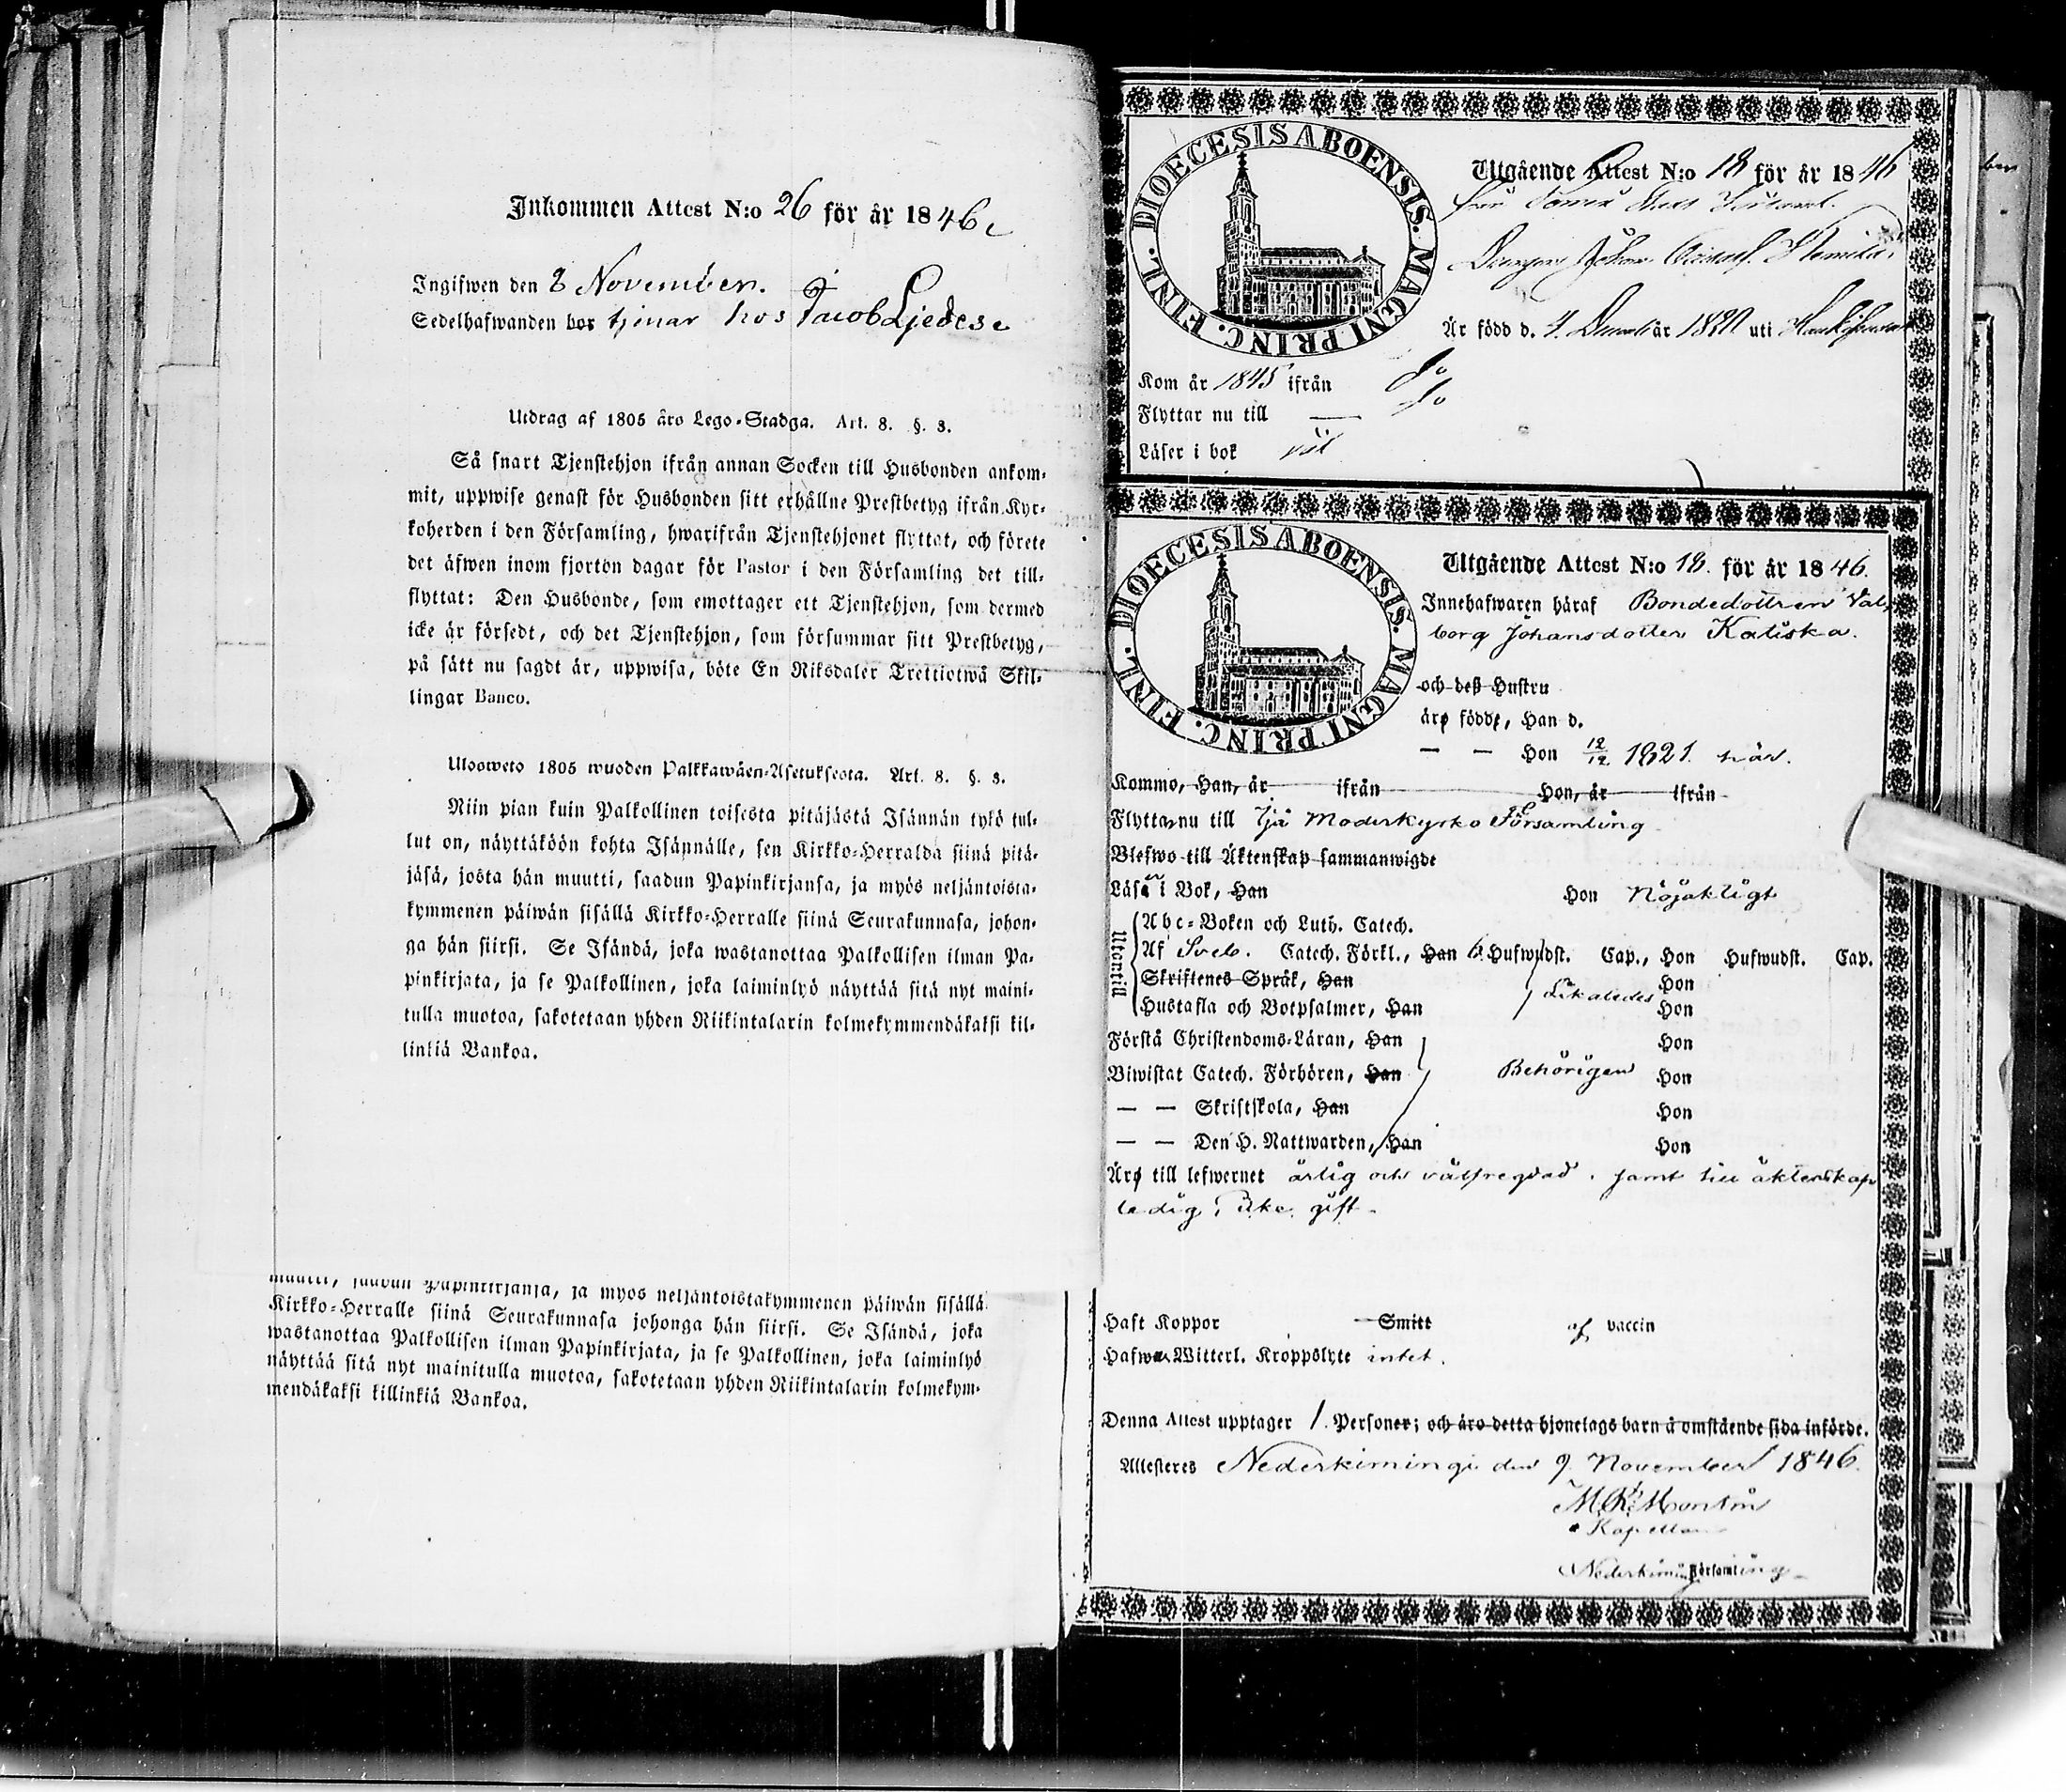 Inkommen Attest N:o 26 för år 1846
Ingifwen den 8 November.
Sedelhafwanden bor tjenar hos Jacob Ljedes
Utdrag af 1805 års Lego-Stadga. Art. 8. §. 3.
Så snart Tjenstehjon ifrån annan Socken till Husbonden ankom-
mit, uppwise genast för Husbonden sitt erhållne Prestbetyg ifrån Kyr-
koherden i den Församling, hwarifrån Tjenstehjonet flyttat, och förete
det äfwen inom fjorton dagar för Pastor i den Församling det till-
flyttat: Den Husbonde, som emottager ett Tjenstehjon, som dermed
icke är försedt, och det Tjenstehjon, som försummar sitt Prestbetyg,
på sätt nu sagdt är, uppwisa, böte En Riksdaler Trettiotwå Skil-
lingar Banco.
Ulosweto 1805 wuoden Palkkawäen-Asetuksesta. Art. 8. §. 3.
Niin pian kuin Palkollinen toisesta pitäjästä Isännän tykö tul-
lut on, näyttäköön kohta Isännälle, sen Kirkko-Herralda siinä pitä-
jäsä, josta hän muutti, saadun Papinkirjansa, ja myös neljäntoista-
kymmenen päiwän sisällä Kirkko-Herralle siinä Seurakunnasa, johon-
ga hän siirsi. Se Isändä, joka wastanottaa Palkollisen ilman Pa-
pinkirjata, ja se Palkollinen, joka laiminlyö näyttää sitä nyt maini-
tulla muotoa, sakotetaan yhden Riikintalarin kolmekymmendäkaksi kil-
linkiä Bankoa.
muutti, saadun Papinkirjansa, ja myös neljäntoistakymmenen päiwän sisällä
Kirkko-Herralle siinä Seurakunnasa johonga hän siirsi. Se Isändä, joka
wastanottaa Palkollisen ilman Papinkirjata, ja se Palkollinen, joka laiminlyö
näyttää sitä nyt mainitulla muotoa, sakotetaan yhden Riikintalarin kolmekym-
mendäkaksi killinkiä Bankoa.
DIOECESIS ABOENSIS. MAGNI PRINC. FINL.
Utgående Attest N:o 18 för år 1846
Johan
Är född d. 4. år uti
Kom år 1845 ifrån
Flyttar nu till
Läser i bok väl
DIOECESIS ABOENSIS. MAGNI PRINC. FINL.
Utgående Attest N:o 18. för år 1846.
Innehafwaren häraf Bondedottren Val-
borg Johansdotter Katiska.
och deß Hustru
äro födde, Han d.
— — Hon 12/12 1821. här.
Kommo, Han, år ifrån Hon, år ifrån
Flytta nu till Ijå Moderkyrko Församling
Blefwo till Äktenskap sammanwigde
Läsa i Bok, Han Hon Nöjaktigt
Utantill
Abc-Boken och Luth. Catech.
Af Sveb. Catech. Förkl., Han 6. Hufwudst. Cap., Hon Hufwudst. Cap.
Skriftenes Språk, Han Hon
Hustafla och Botpsalmer, Han Likaledes Hon
Förstå Christendoms-Läran, Han Hon
Biwistat Catech. Förhören, Han Behörigen Hon
— — Skriftskola, Han Hon
— — Den H. Nattwarden, Han Hon
Äro till lefwernet ärlig och välfregdad, samt till äktenskap
ledig, icke gift.
Haft Koppor Smitt af vaccin
Hafwa Witterl. Kroppslyte intet.
Denna Attest upptager 1. Personer; och äro detta hjonelags barn å omstående sida införde.
Attesteres Nederkimingi den 9. November 1846.
Kapellan
Nederkimingi Församling